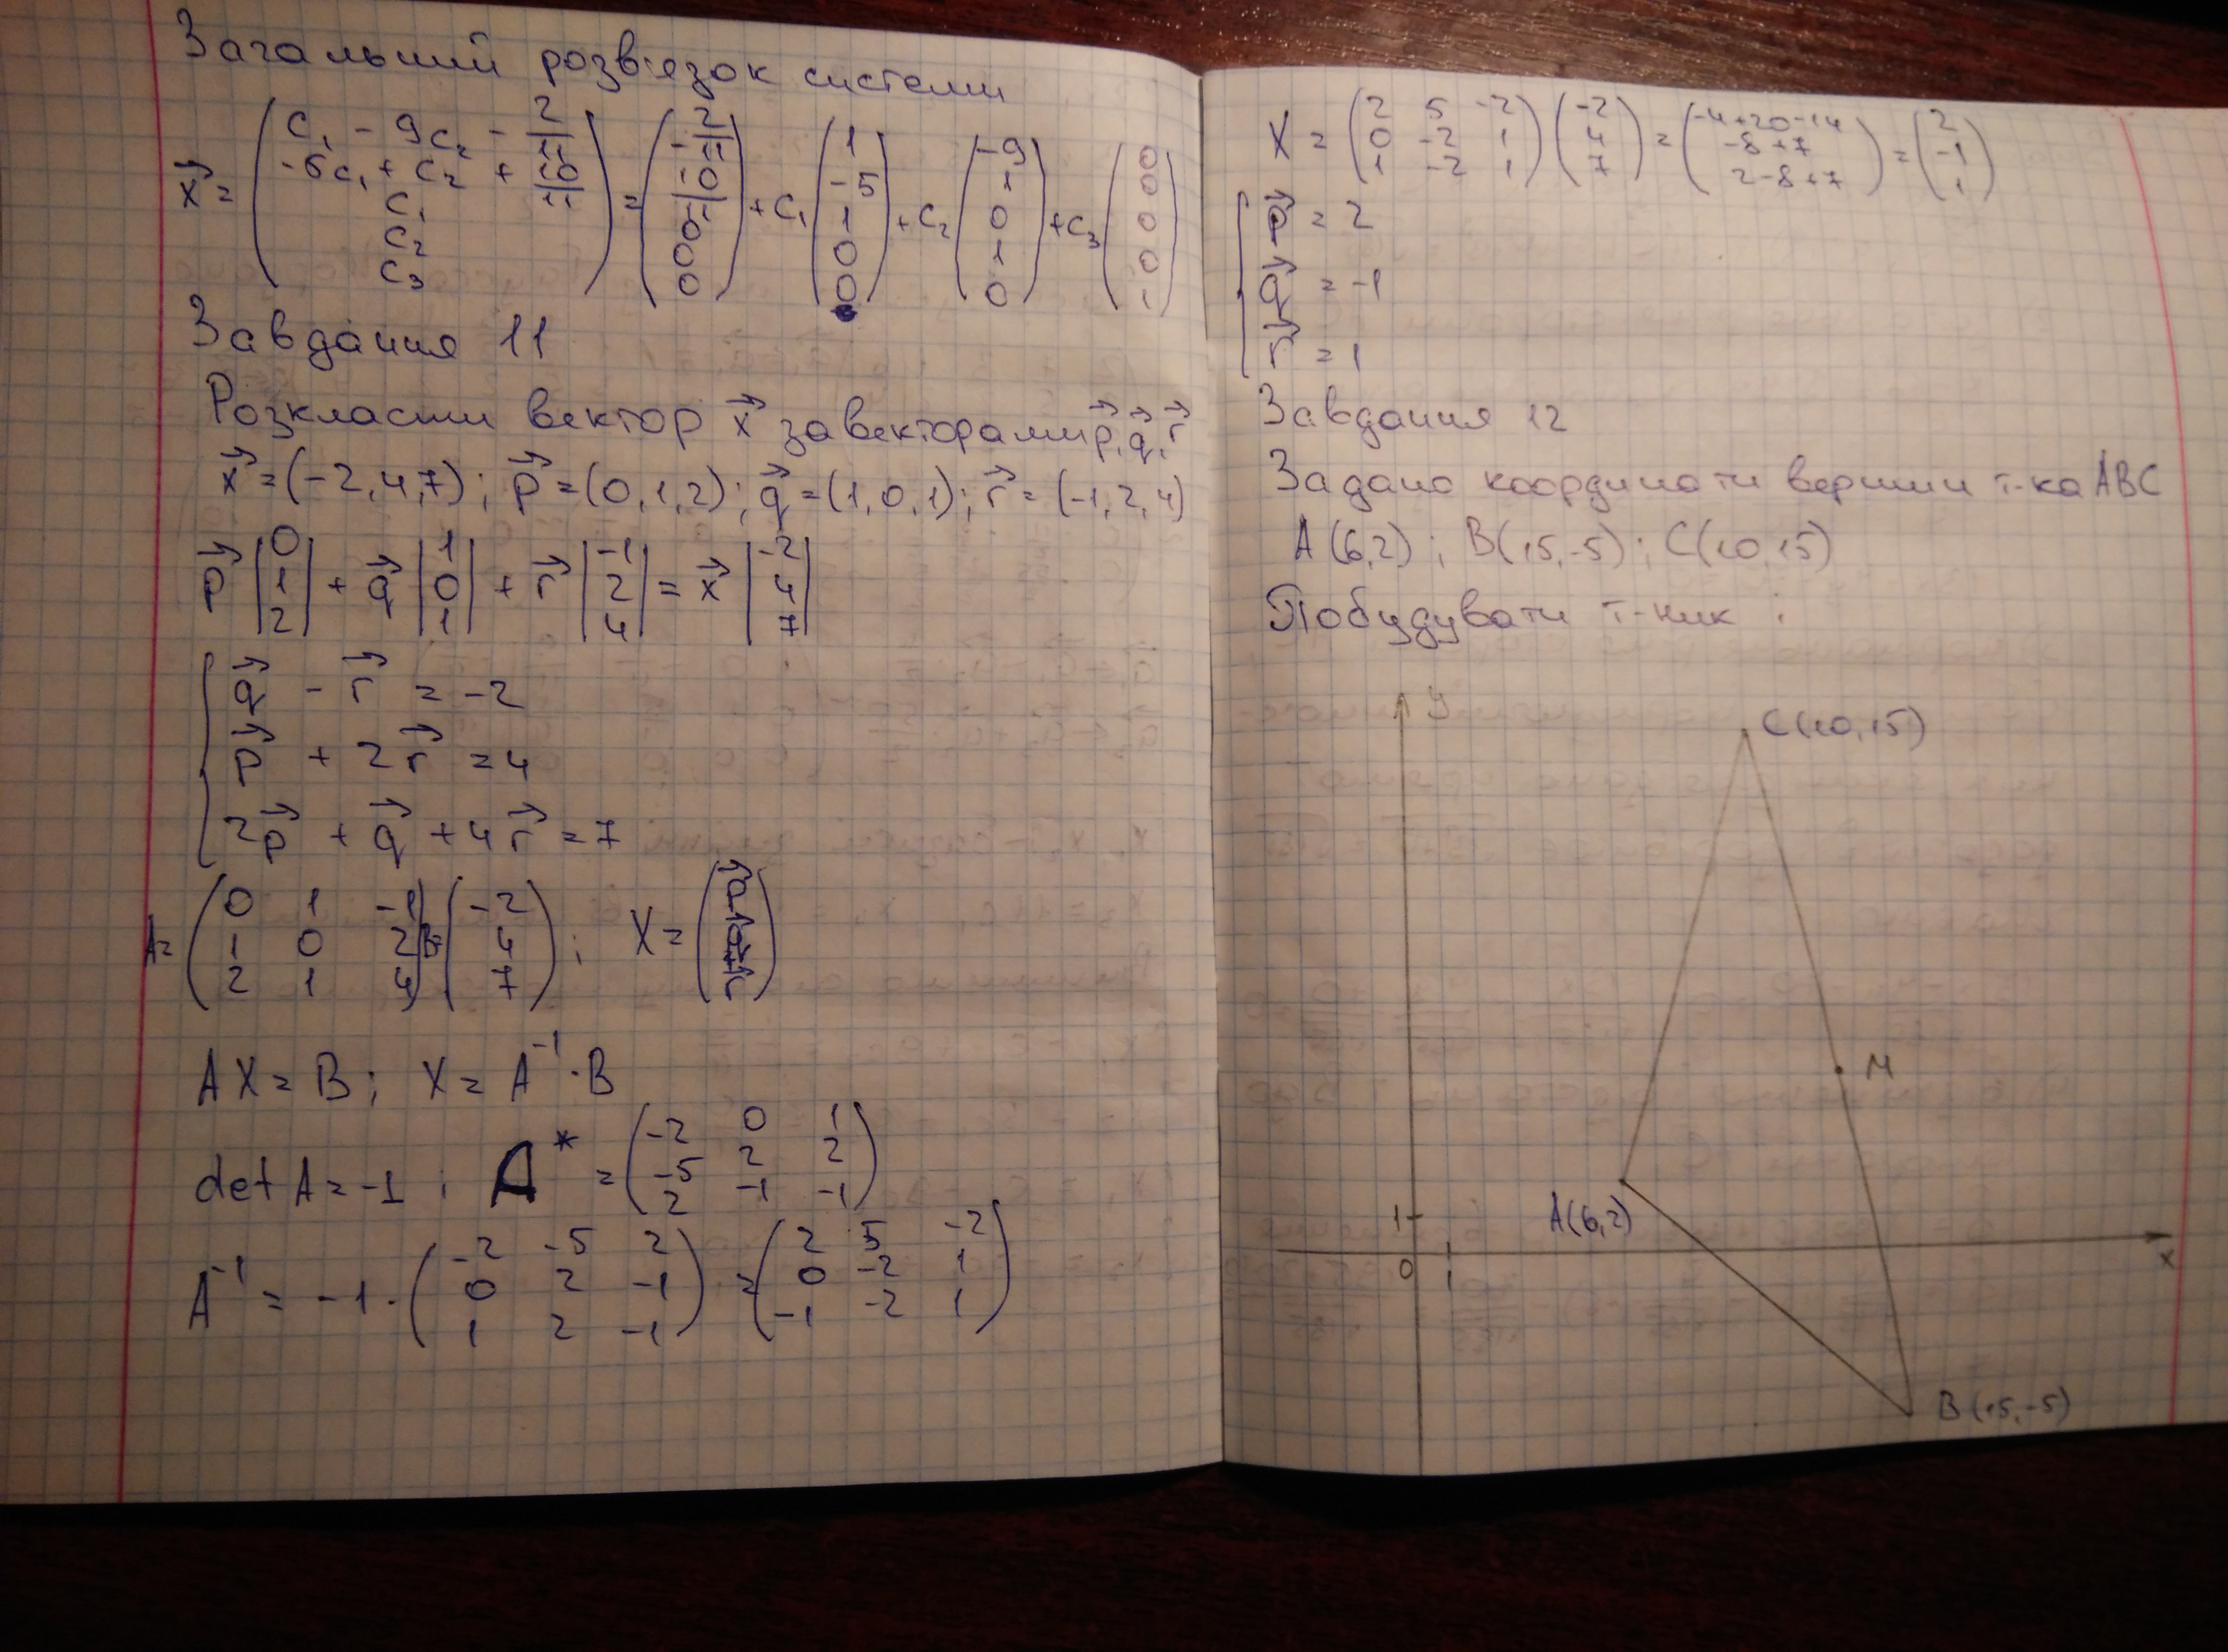 Загальний розв'язок системи
x⃗ = (c₁ - 9c₂ - 2/11; -5c₁ + c₂ + 10/11; c₁; c₂; c₃) = (-2/11; 10/11; 0; 0; 0) + c₁ (1; -5; 1; 0; 0) + c₂ (-9; 1; 0; 1; 0) + c₃ (0; 0; 0; 0; 1)
Завдання 11
Розкласти вектор x⃗ за векторами p⃗, q⃗, r⃗
x⃗ = (-2,4,7); p⃗ = (0,1,2); q⃗ = (1,0,1); r⃗ = (-1,2,4)
p⃗ |0; 1; 2| + q⃗ |1; 0; 1| + r⃗ |-1; 2; 4| = x⃗ |-2; 4; 7|
q⃗ - r⃗ = -2
p⃗ + 2r⃗ = 4
2p⃗ + q⃗ + 4r⃗ = 7
A = (0 1 -1; 1 0 2; 2 1 4) B = (-2; 4; 7); X =
AX = B; X = A⁻¹·B
det A = -1; A* = (-2 0 1; -5 2 2; 2 -1 -1)
A⁻¹ = -1·(-2 -5 2; 0 2 -1; 1 2 -1) = (2 5 -2; 0 -2 1; -1 -2 1)
X = (2 5 -2; 0 -2 1; 1 -2 1) (-2; 4; 7) = (-4+20-14; -8+7; 2-8+7) = (2; -1; 1)
p⃗ = 2
q⃗ = -1
r⃗ = 1
Завдання 12
Задано координати вершин т-ка ABC
A(6,2); B(15,-5); C(10,15)
Побудувати т-ник :
y
C(10,15)
M
A(6,2)
1
0
1
x
B(15,-5)